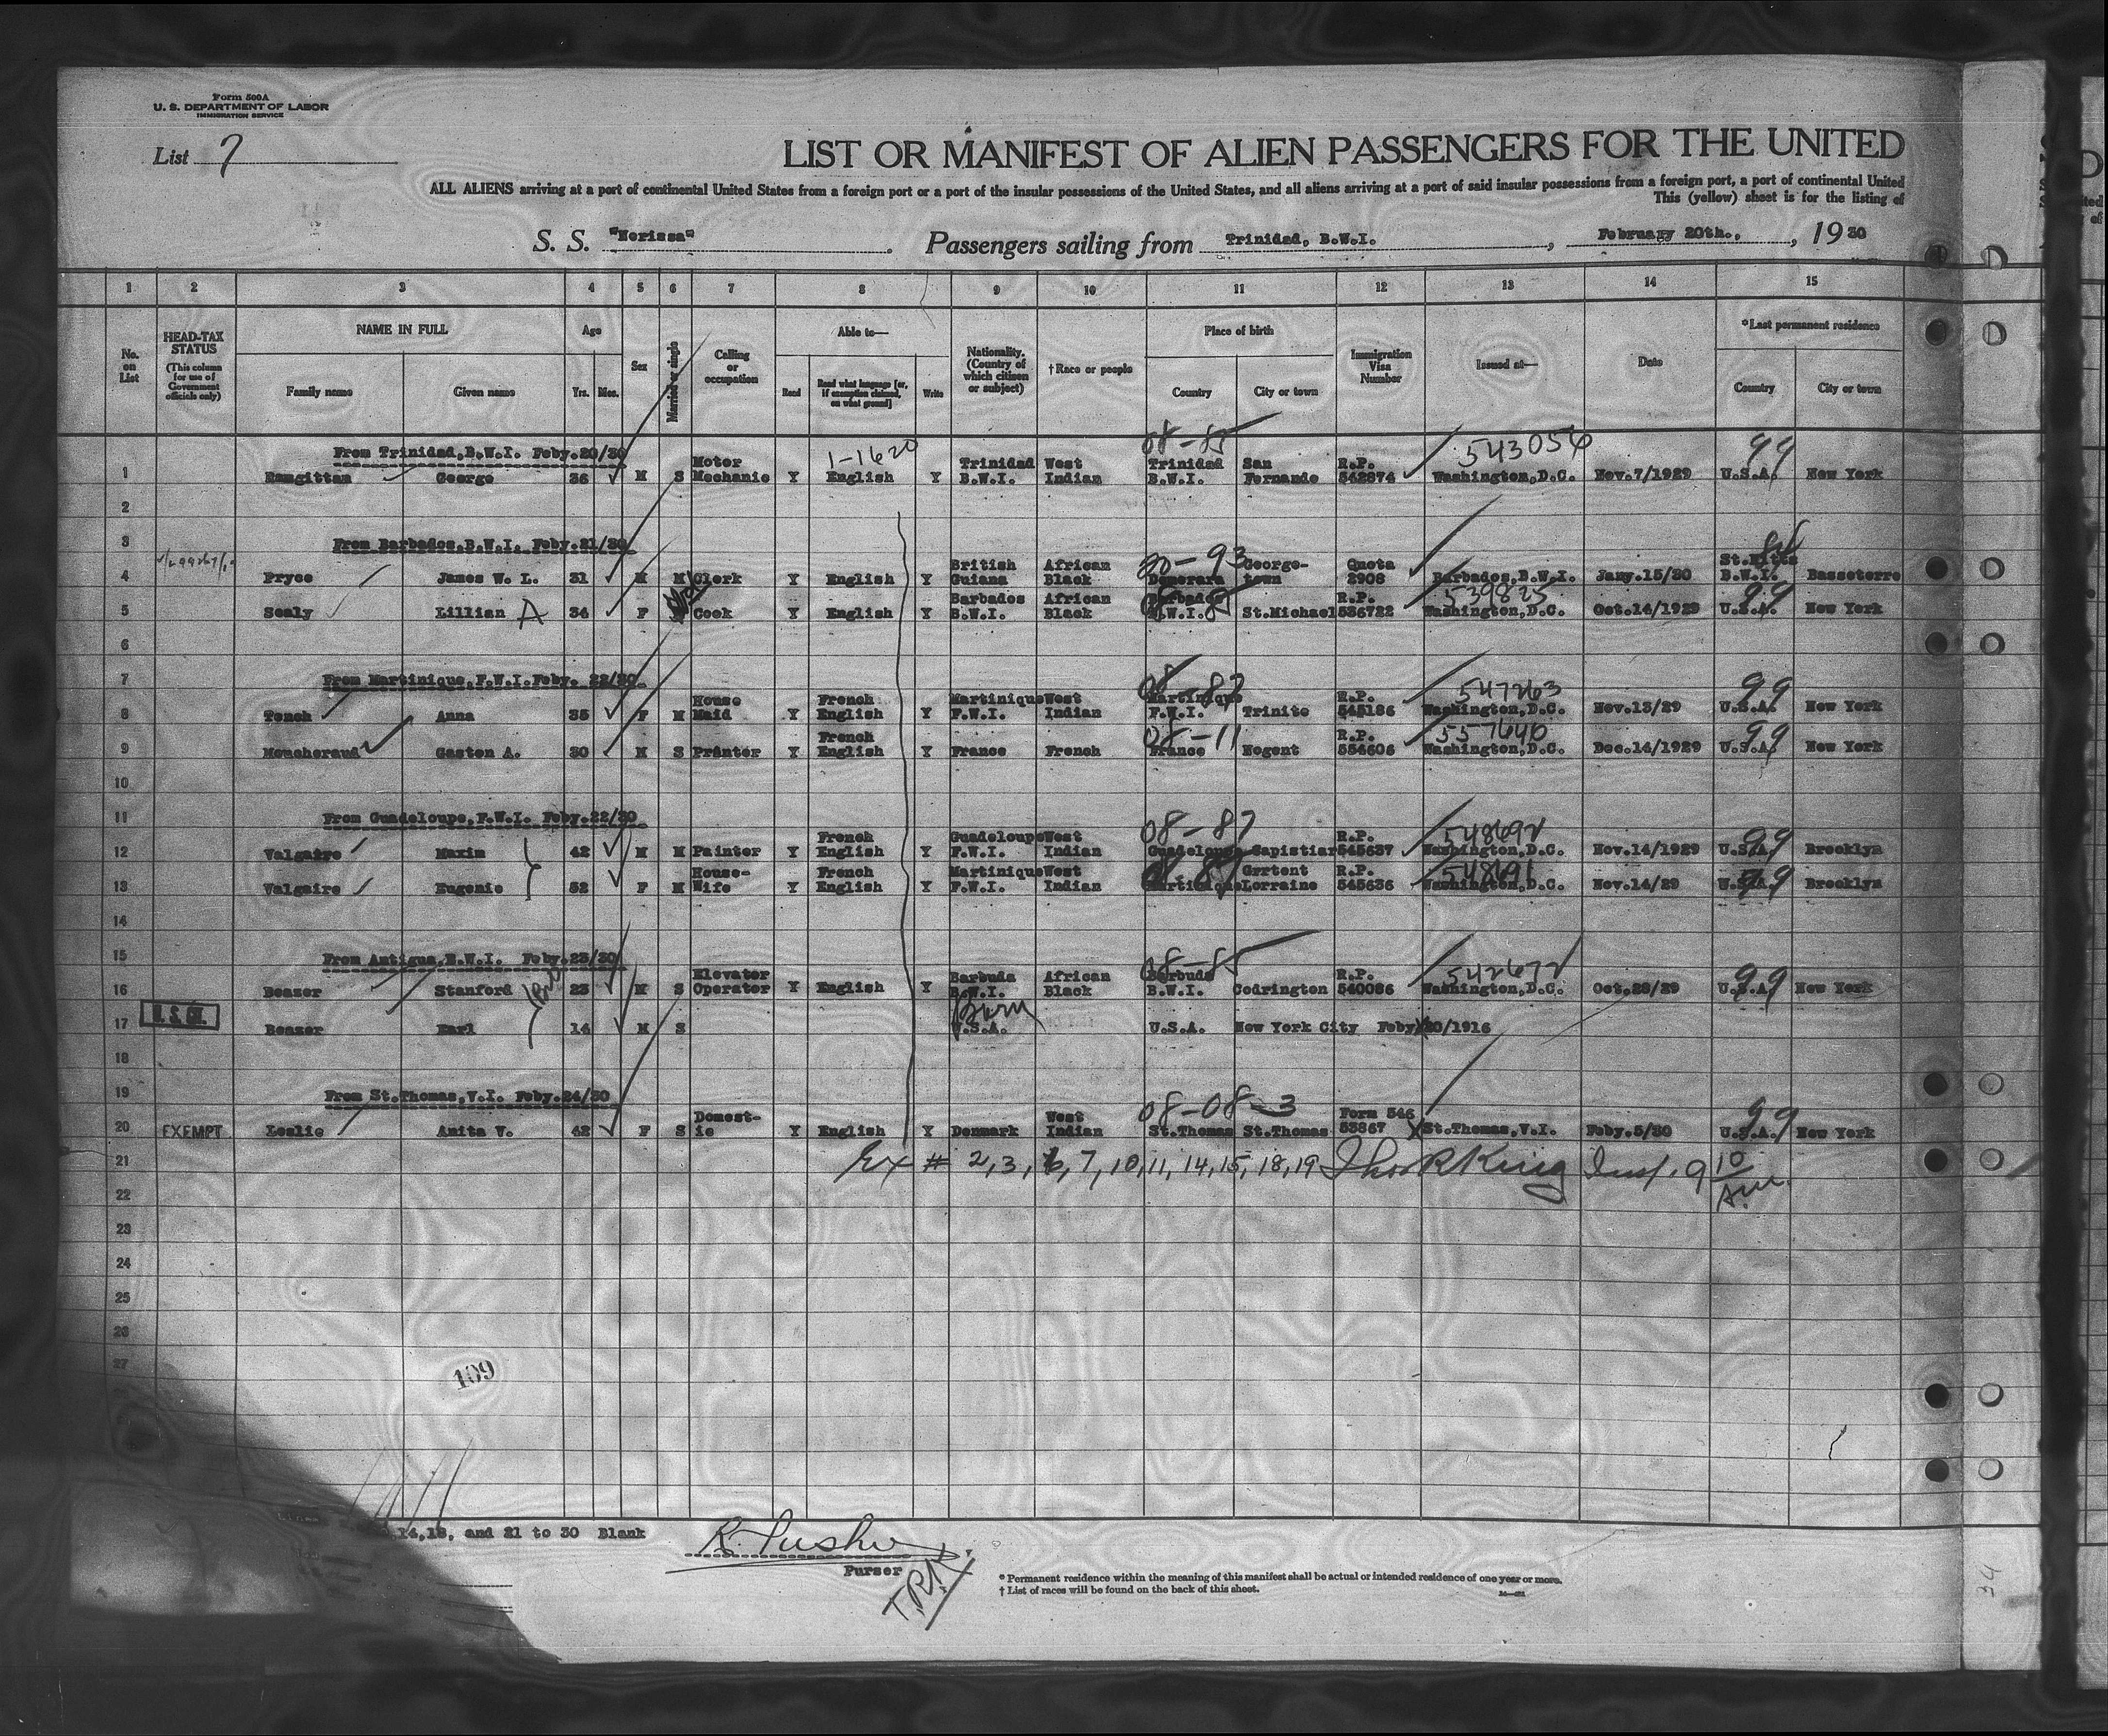 Form 500A
U. S. DEPARTMENT OF LABOR
IMMIGRATION SERVICE
List 7
LIST OR MANIFEST OF ALIEN PASSENGERS FOR THE UNITED
ALL ALIENS arriving at a port of continental United States from a foreign port or a port of the insular possessions of the United States, and all aliens arriving at a port of said insular possessions from a foreign port, a port of continental United
This (yellow) sheet is for the listing of
S. S. "Nerissa" . Passengers sailing from Trinidad, B.W.I. , February 20th., , 19 30
1 2 3 4 5 6 7 8 9 10 11 12 13 14 15
No. on List
HEAD-TAX STATUS (This column for use of Government officials only)
NAME IN FULL Family name Given name
Age Yrs. Mos.
Sex
Married or single
Calling or occupation
Able to— Read Read what language [or, if exemption claimed, on what ground] Write
Nationality. (Country of which citizen or subject)
† Race or people
Place of birth Country City or town
Immigration Visa Number
Issued at—
Date
*Last permanent residence Country City or town
From Trinidad,B.W.I. Feby.20/30 1-1620 08-85 543056 99
1 Ramgittan George 36 M S Motor Mechanic Y English Y Trinidad B.W.I. West Indian Trinidad B.W.I. San Fernando R.P. 542874 Washington,D.C. Nov.7/1929 U.S.A. New York
2
3 From Barbados,B.W.I. Feby.21/30
4 Pryce James W. L. 31 M M Clerk Y English Y British Guiana African Black 30-93 Demerara George-town Quota 2908 Barbados,B.W.I. Jany.15/30 St.Kitts B.W.I. Basseterre
5 Sealy Lillian A 34 F Cook Y English Y Barbados B.W.I. African Black Barbados B.W.I. St.Michael R.P. 536722 539825 Washington,D.C. Oct.14/1929 U.S.A. 99 New York
6
7 From Martinique,F.W.I.Feby. 22/30
8 Tench Anna 35 F M House Maid Y French English Y Martinique F.W.I. West Indian 08-87 Martinique F.W.I. Trinite R.P. 545186 547263 Washington,D.C. Nov.13/29 U.S.A. 99 New York
9 Moucheraud Gaston A. 30 M S Printer Y French English Y France French 08-11 France Nogent R.P. 554606 557640 Washington,D.C. Dec.14/1929 U.S.A. 99 New York
10
11 From Guadeloupe,F.W.I. Feby.22/30
12 Valgaire Maxim 42 M M Painter Y French English Y Guadeloupe F.W.I. West Indian 08-87 Guadeloupe Capistiar R.P. 545637 548692 Washington,D.C. Nov.14/1929 U.S.A. 99 Brooklyn
13 Valgaire Eugenie 52 F M House-Wife Y French English Y Martinique F.W.I. West Indian 08-87 Martinique Grrtent Lorraine R.P. 545636 548691 Washington,D.C. Nov.14/29 U.S.A. 99 Brooklyn
14
15 From Antigua,B.W.I. Feby.23/30
16 Beazer Stanford 23 M S Elevator Operator Y English Y Barbuda B.W.I. African Black 08-85 Barbuda B.W.I. Codrington R.P. 540086 542672 Washington,D.C. Oct.28/29 U.S.A. 99 New York
17 U. S. CIT. Beazer Earl 14 M S Born U.S.A. U.S.A. New York City Feby 20/1916
18
19 From St.Thomas,V.I. Feby.24/30
20 EXEMPT Leslie Anita V. 42 F S Domest-ic Y English Y Denmark West Indian 08-08-3 St.Thomas St.Thomas Form 546 53867 X St.Thomas,V.I. Feby.5/30 U.S.A. 99 New York
21 Ex # 2, 3, 6, 7, 10, 11, 14, 15, 18, 19 Thos R King Insp. 9 10 Am.
22
23
24
25
26
27
109
14,18, and 21 to 30 Blank
Purser
T.R.K
* Permanent residence within the meaning of this manifest shall be actual or intended residence of one year or more.
† List of races will be found on the back of this sheet.
34